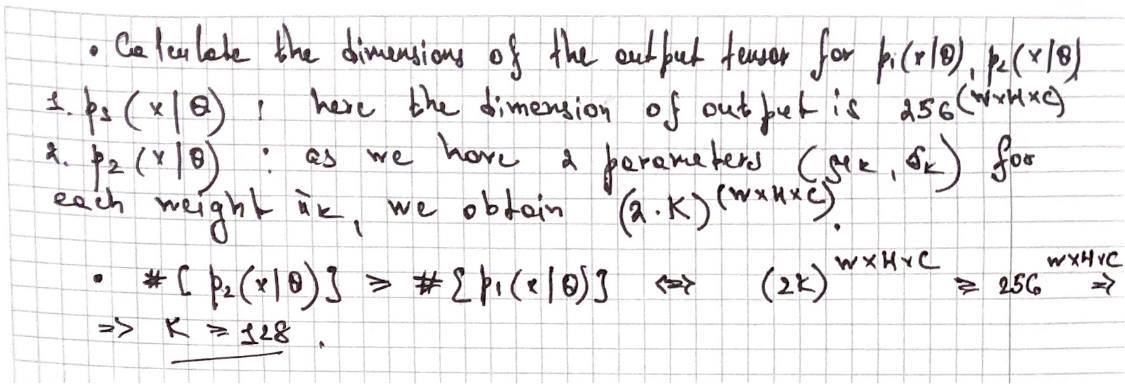 • Calculate the dimensions of the output tensor for p₁(x|θ), p₂(x|θ)
1. p₁(x|θ) : here the dimension of output is 256^(W×H×C)
2. p₂(x|θ) : as we have 2 parameters (μₖ, σₖ) for
each weight πₖ, we obtain (2·K)^(W×H×C).
• #[p₂(x|θ)] ≥ #[p₁(x|θ)] <=> (2K)^W×H×C ≥ 256^W×H×C =>
=> K ≥ 128.